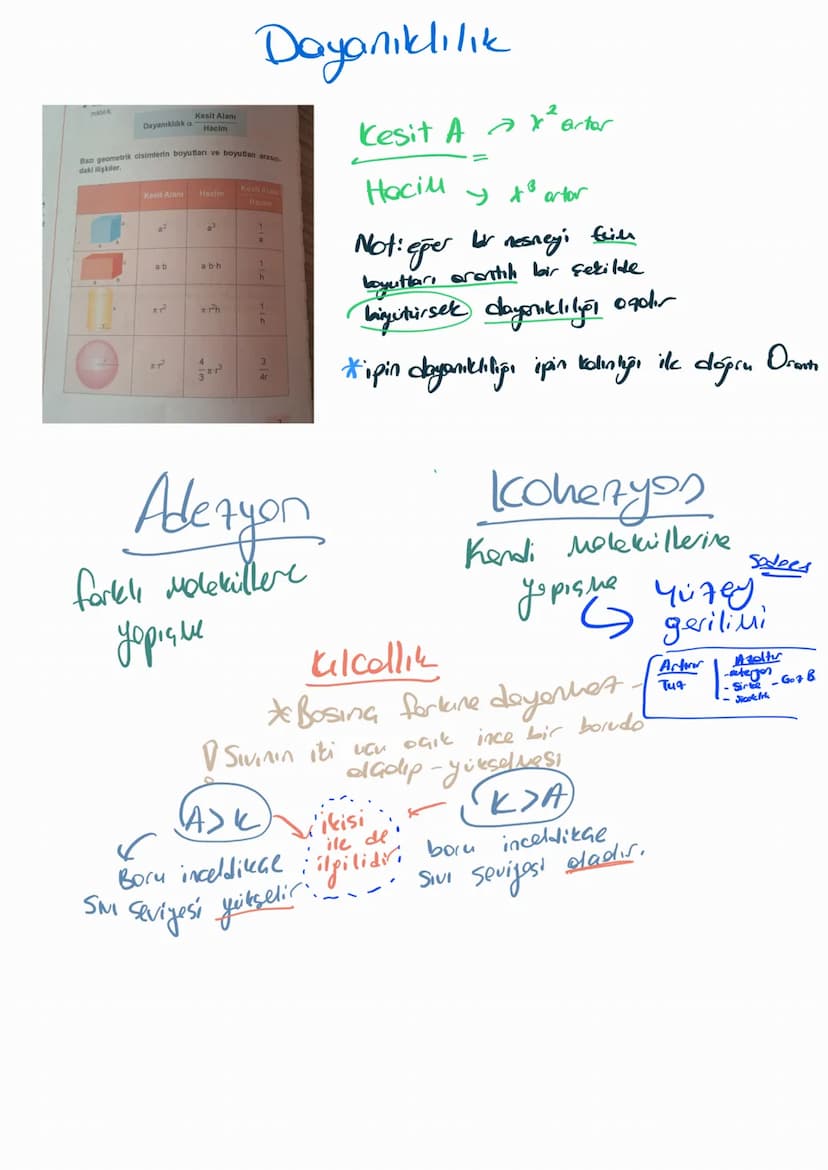 Dayanıklılık
Dayanıklılık α Kesit Alanı
Hacim
Bazı geometrik cisimlerin boyutları ve boyutları arasın-
daki ilişkiler.
Kesit Alanı Hacim Kesit Alanı
Hacim
a² a³ 1
a
a·b a·b·h 1
h
πr² πr²h 1
h
πr² 4
3 πr³ 3
4r
Kesit A → x² artar
Hacim → x³ artar
Not: eğer bir nesneyi tüm
boyutları orantılı bir şekilde
büyütürsek dayanıklılığı azalır
*ipin dayanıklılığı ipin kalınlığı ile doğru Orantı
Adezyon
farklı moleküllere
yapışme
Kohezyon
Kendi moleküllerine
yapışma
Sadece
yüzey
gerilimi
Artırır
Tuz
Azaltır
- deterjan
- Sirke
- sıcaklık
Kılcallık
*Basınç farkına dayanmaz
Sıvının iki ucu açık ince bir boruda
alçalıp-yükselmesi
A>K
Boru inceldikçe
Sıvı seviyesi yükselir
ikisi
ile de
ilgilidir
K>A
boru inceldikçe
Sıvı seviyesi